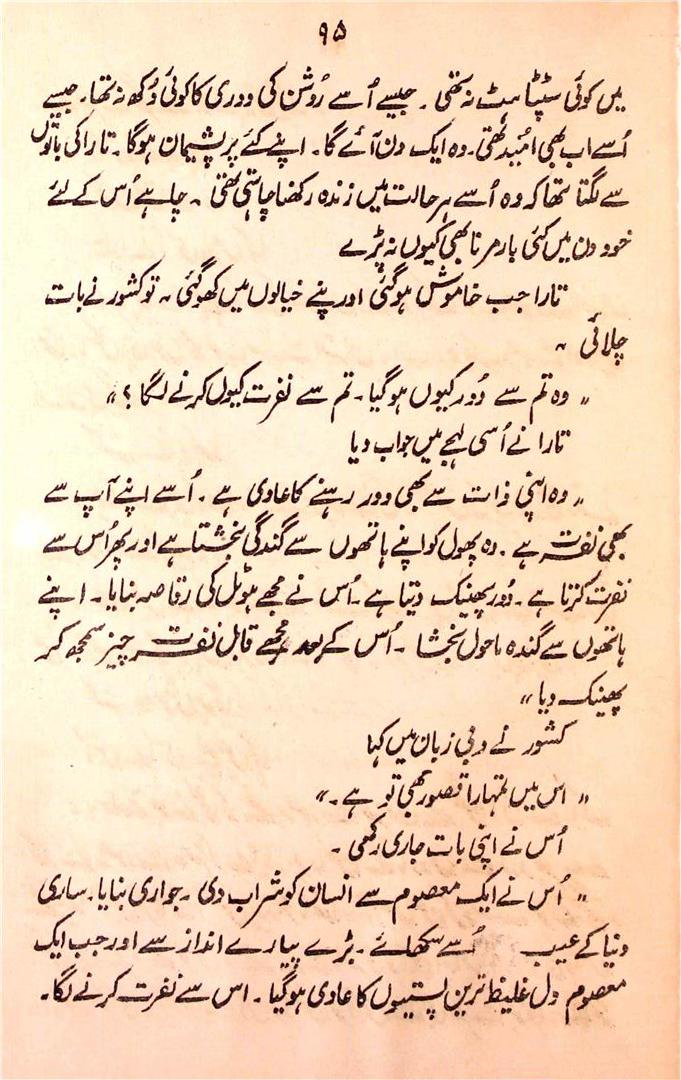 ۹۵
میں کوئی سٹپٹاہٹ نہ تھی ۔ جیسے اُسے رُوشن کی دوری کا کوئی دُکھ نہ تھا۔ جیسے
اُسے اب بھی امُید تھی۔ وہ ایک دن آئے گا۔ اپنے کئے پر پشیمان ہوگا ۔ تارا کی باتوں
سے لگتا تھا کہ وہ اُسے ہر حالت میں زندہ رکھنا چاہتی تھی ۔ چاہے اُس کے لئے
خود دن میں کئی بار مرنا بھی کیوں نہ پڑے
تارا جب خاموش ہوگئی اور اپنے خیالوں میں کھو گئی ۔ تو کشور نے بات
چلائی ۔
" وہ تم سے دُور کیوں ہوگیا۔ تم سے نفرت کیوں کرنے لگا ؟ "
تارا نے اُسی لہجے میں جواب دیا
" وہ اپنی ذات سے بھی دور رہنے کا عادی ہے ۔ اُسے اپنے آپ سے
بھی نفرت ہے ۔ وہ پھول کو اپنے ہاتھوں سے گندگی بخشتا ہے اور پھر اُس سے
نفرت کرتا ہے ۔ دُور پھینک دیتا ہے ۔ اُس نے مجھے ہوٹل کی رقاصہ بنایا۔ اپنے
ہاتھوں سے گندہ ماحول بخشا ۔ اُس کے بعد مجھے قابل نفرت چیز سمجھ کر
پھینک دیا "
کشور نے دبی زبان میں کہا
" اس میں تمہارا قصور بھی تو ہے ۔ "
اُس نے اپنی بات جاری رکھی ۔
" اُس نے ایک معصوم سے انسان کو شراب دی ۔ جواری بنایا۔ ساری
دنیا کے عیب اُسے سکھلائے ۔ بڑے پیارے انداز سے اور جب ایک
معصوم دل غلیظ ترین پستیوں کا عادی ہوگیا ۔ اس سے نفرت کرنے لگا۔